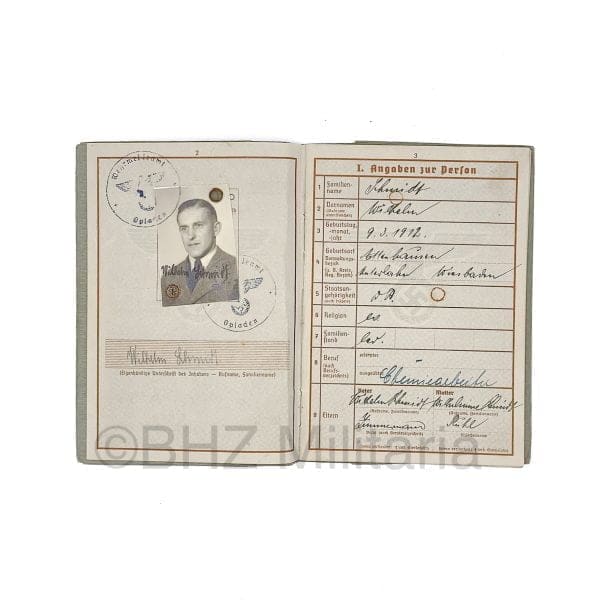 2
Wehrmeldeamt
Opladen
Wilhelm Schmidt
Opladen
Wilhelm Schmidt
(Eigenhändige Unterschrift des Inhabers — Rufname, Familienname)
3
I. Angaben zur Person
1 Familien-
name
Schmidt
2 Vornamen
(Rufname
unterstreichen)
Wilhelm
3 Geburtstag,
-monat,
-jahr
9.3.1912.
4 Geburtsort
Verwaltungs-
bezirk
(z. B. Kreis,
Reg. Bezirk)
Attenhausen
Unterlahn Wiesbaden
5 Staatsan-
gehörigkeit
(auch frühere)
D.R.
6 Religion
ev
7 Familien-
stand
led.
8 Beruf
(nach
Berufs-
verzeichnis)
erlernter
ausgeübter
Chemiearbeiter
9 Eltern
Vater
Mutter
Wilhelm Schmidt
Wilhelmine Schmidt
(Rufname, Familienname)
(Rufname, Familienname)
Zimmermann
Rühl
©BHZ Militaria